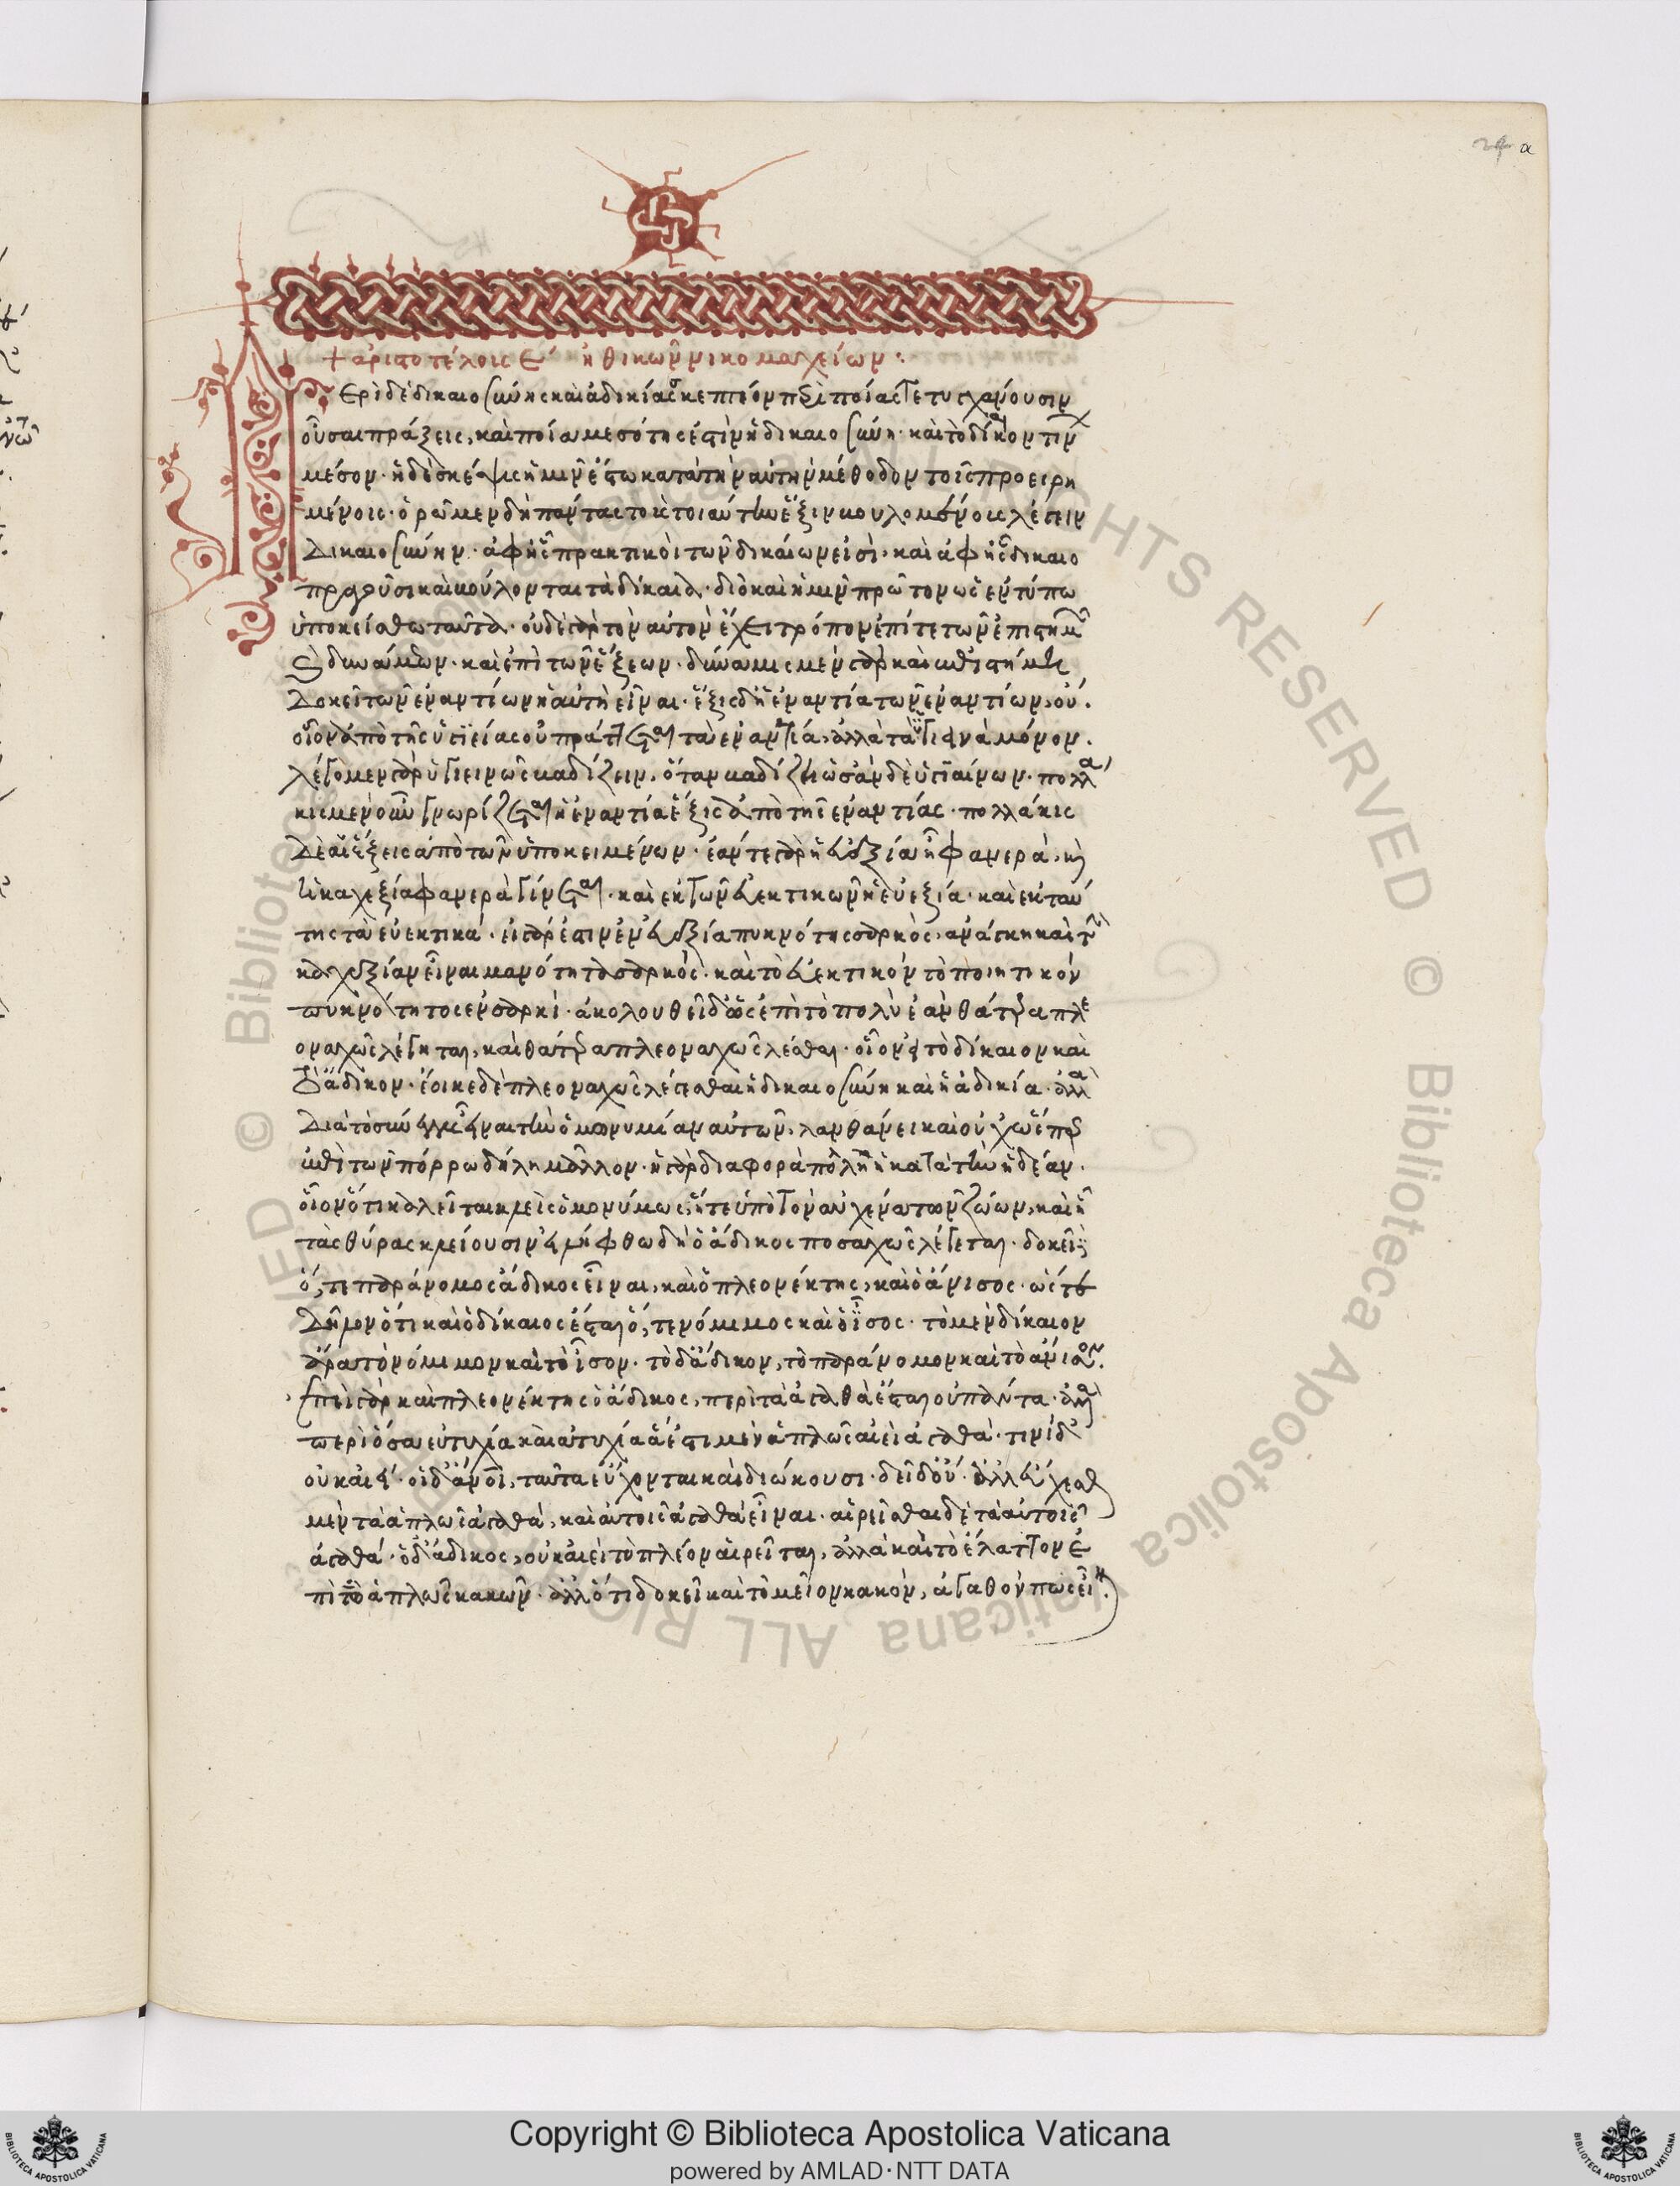 α
+ ἀριστοτέλους Ε΄ ἠθικῶν νικομαχείων :
Περὶ δὲ δικαιοσύνης καὶ ἀδικίας σκεπτέον περὶ ποίας τε τυγχάνουσιν
οὖσαι πράξεις, καὶ ποία μεσότης ἐστὶν ἡ δικαιοσύνη· καὶ τὸ δίκαιον τίνων
μέσον· ἡ δὲ σκέψις ἡμῖν ἔστω κατὰ τὴν αὐτὴν μέθοδον τοῖς προειρη
μένοις· ὁρῶμεν δὴ πάντας τὴν τοιαύτην ἕξιν βουλομένους λέγειν
δικαιοσύνην· ἀφ ἧς πρακτικοὶ τῶν δικαίων εἰσὶ· καὶ ἀφ ἧς δικαιο
πραγοῦσι καὶ βούλονται τὰ δίκαια· διὸ καὶ ἡμῖν πρῶτον ὡς ἐν τύπω
ὑποκείσθω ταῦτα· οὐδὲ γὰρ τὸν αὐτὸν ἔχει τρόπον ἐπί τε τῶν ἐπιστημῶν
καὶ δυνάμεων· καὶ ἐπὶ τῶν ἕξεων· δύναμις μὲν γὰρ καὶ ἐπιστήμη
δοκεῖ τῶν ἐναντίων ἡ αὐτὴ εἶναι· ἕξις δ ἡ ἐναντία τῶν ἐναντίων, οὔ·
οἷον ἀπὸ τῆς ὑγιείας οὐ πράττεται τὰ ἐναντία, ἀλλὰ τὰ ὑγιεινὰ μόνον·
λέγομεν γὰρ ὑγιεινῶς βαδίζειν, ὅταν βαδίζη ὡς ἂν ὁ ὑγιαίνων· πολλά
κις μὲν οὖν γνωρίζεται ἡ ἐναντία ἕξις ἀπὸ τῆς ἐναντίας· πολλάκις
δὲ αἱ ἕξεις ἀπὸ τῶν ὑποκειμένων· ἐάν τε γὰρ ἡ εὐεξία ἦ φανερὰ, καὶ
ἡ καχεξία φανερὰ γίνεται· καὶ ἐκ τῶν εὐεκτικῶν ἡ εὐεξία· καὶ ἐκ ταύ
της τὰ εὐεκτικά· εἰ γάρ ἐστιν ἡ εὐεξία πυκνότης σαρκὸς, ἀνάγκη καὶ τὴν
καχεξίαν εἶναι μανότητα σαρκός· καὶ τὸ εὐεκτικὸν τὸ ποιητικὸν
πυκνότητος ἐν σαρκί· ἀκολουθεῖ δ ὡς ἐπὶ τὸ πολὺ ἐὰν θάτερα πλε
οναχῶς λέγηται, καὶ θάτερα πλεοναχῶς λέγεσθαι· οἷον εἰ τὸ δίκαιον καὶ
τὸ ἄδικον· ἔοικε δὲ πλεοναχῶς λέγεσθαι ἡ δικαιοσύνη καὶ ἡ ἀδικία· ἀλλὰ
διὰ τὸ σύνεγγυς εἶναι τὴν ὁμωνυμίαν αὐτῶν, λανθάνει καὶ οὐχ ὥσπερ
ἐπὶ τῶν πόρρω δήλη μᾶλλον· ἡ γὰρ διαφορὰ πολλὴ ἡ κατὰ τὴν ἰδέαν·
οἷον ὅτι καλεῖται κλεὶς ὁμωνύμως, ἥ τε ὑπὸ τὸν αὐχένα τῶν ζώων, καὶ ἧ
τὰς θύρας κλείουσιν εἰλήφθω δὴ ὁ ἄδικος ποσαχῶς λέγεται· δοκεῖ
ὅ, τε παράνομος ἄδικος εἶναι, καὶ ὁ πλεονέκτης, καὶ ὁ ἄνισος· ὥστε
δῆλον ὅτι καὶ ὁ δίκαιος ἔσται ὅ, τε νόμιμος καὶ ὁ ἴσος· τὸ μὲν δίκαιον
ἄρα τὸ νόμιμον καὶ τὸ ἴσον· τὸ δ ἄδικον, τὸ παράνομον καὶ τὸ ἄνισον·
ἐπεὶ γὰρ καὶ πλεονέκτης ὁ ἄδικος, περὶ τὰ ἀγαθὰ ἔσται οὐ πάντα· ἀλλὰ
περὶ ὅσα εὐτυχία καὶ ἀτυχία ἅ ἐστι μὲν ἁπλῶς αἰεὶ ἀγαθὰ· τινὶ δ
οὐκ αἰεί· οἱ δ ἄνθρωποι, ταῦτα εὔχονται καὶ διώκουσι· δεῖ δ οὔ· ἀλλ εὔχεσθαι
μὲν τὰ ἁπλῶς ἀγαθά, καὶ αὐτοῖς ἀγαθὰ εἶναι· αἱρεῖσθαι δὲ τὰ αὐτοῖς
ἀγαθά· ὁ δ ἄδικος, οὐκ αἰεὶ τὸ πλέον αἱρεῖται, ἀλλὰ καὶ τὸ ἔλαττον ἐ
πὶ τῶν ἁπλῶς κακῶν· ἀλλ ὅτι δοκεῖ καὶ τὸ μεῖον κακὸν, ἀγαθόν πως εἶναι·
Copyright © Biblioteca Apostolica Vaticana
powered by AMLAD·NTT DATA